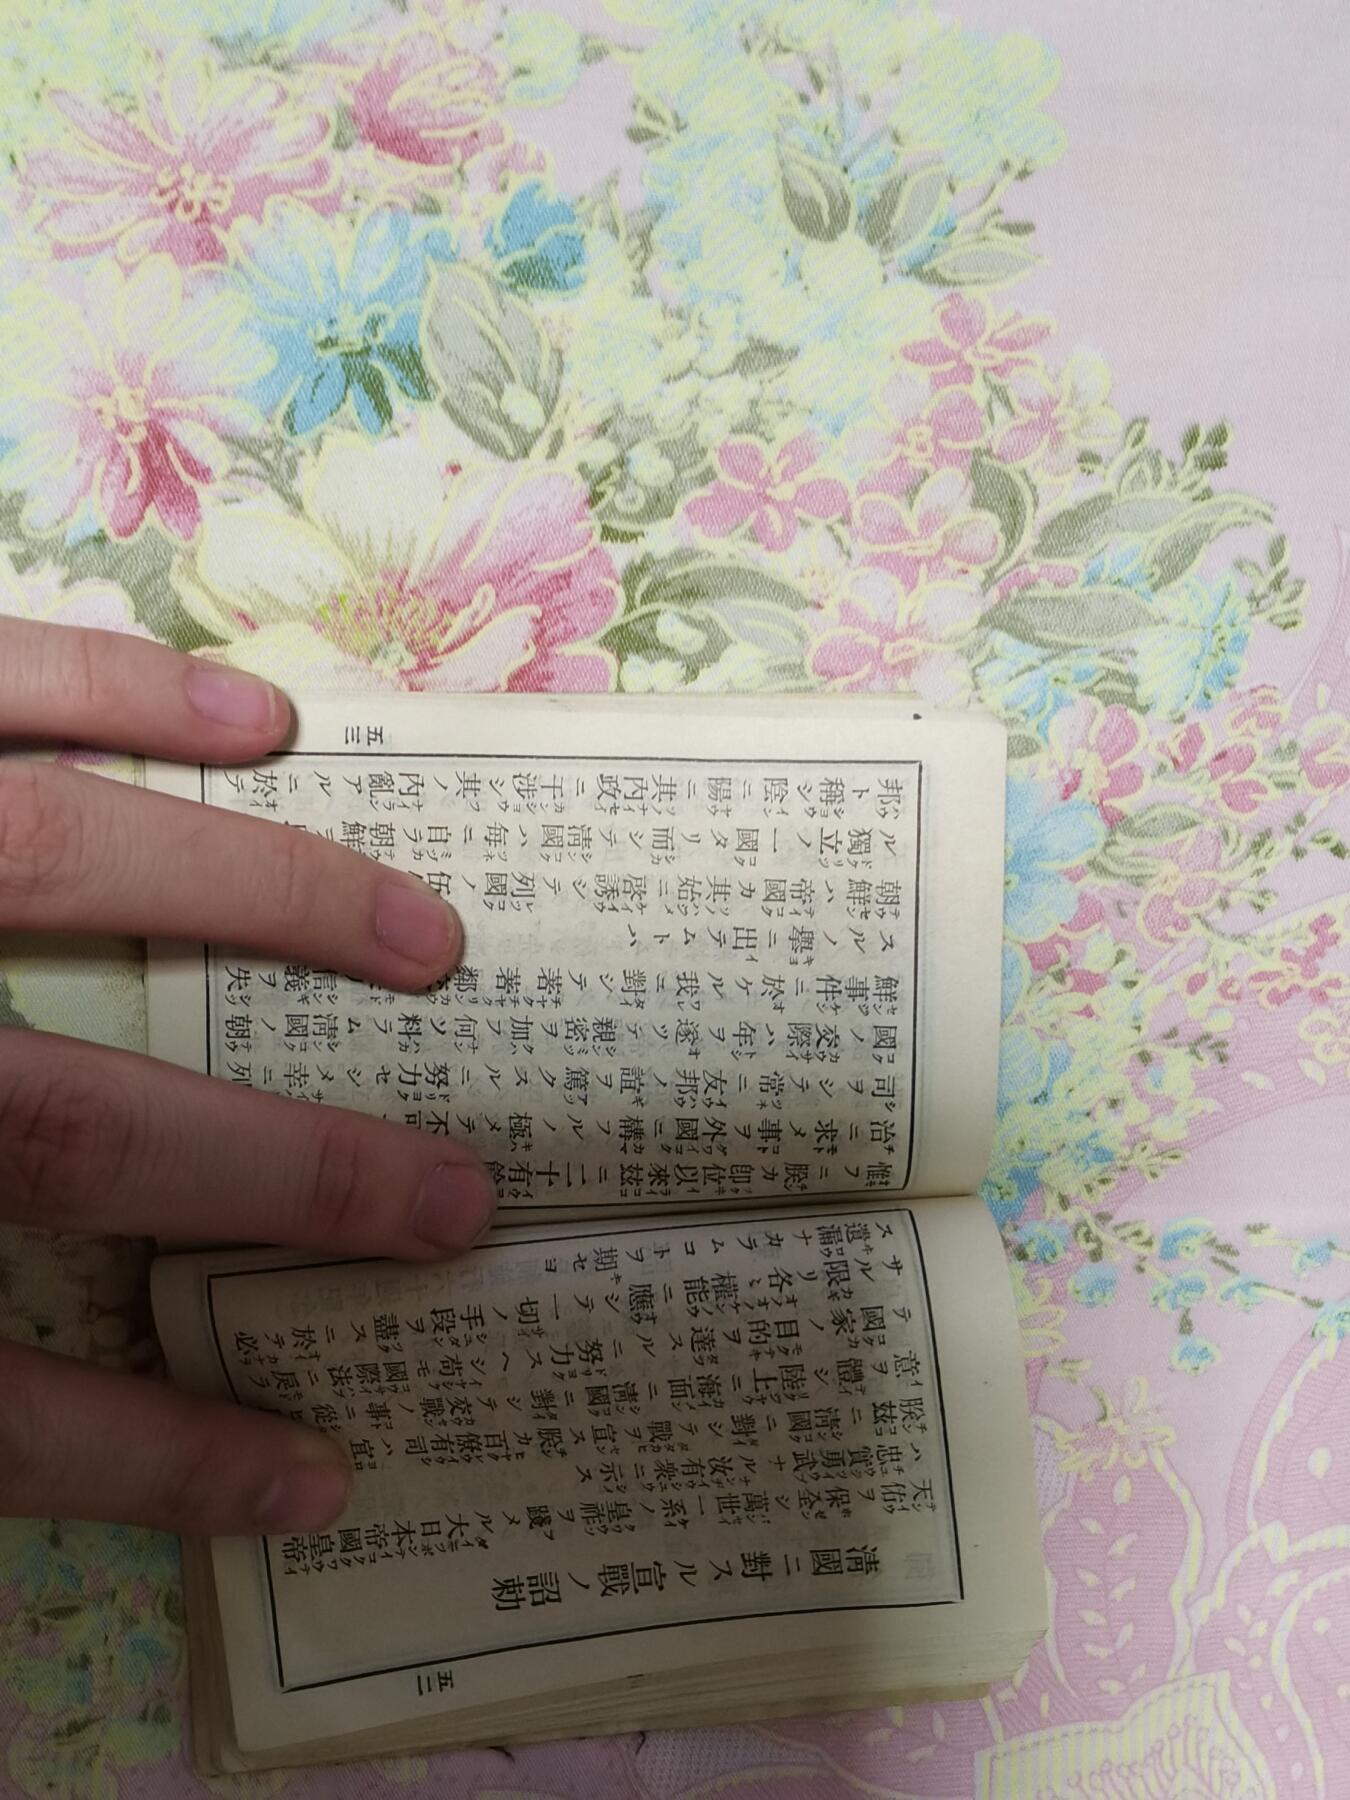 清國ニ對スル宣戰ノ詔勅
天佑ヲ保全シ萬世一系ノ皇祚ヲ踐メル大日本帝國皇帝
ハ忠實勇武ナル汝有衆ニ示ス
朕茲ニ清國ニ對シテ戰ヲ宣ス朕カ百僚有司ハ宜
意ヲ體シ陸上ニ海面ニ清國ニ對シテ交戰ノ事ニ從ヒ
テ國家ノ目的ヲ達スルニ努力スヘシ苟モ國際法ニ戾ラ
サル限リ各〻權能ニ應シテ一切ノ手段ヲ盡スニ於テ必
ス遺漏ナカラムコトヲ期セヨ
五二
惟フニ朕カ卽位以來茲ニ二十有餘
治ニ求メ事ヲ外國ニ構フルノ極メテ不可
司ヲシテ常ニ友邦ノ誼ヲ篤クスルニ努力セシメ幸ニ列
國ノ交際ハ年ヲ逐ツテ親密ヲ加フ何ソ料ラム清國ノ朝
鮮事件ニ於ケル我ニ對シテ著著鄰信義ヲ失
スルノ擧ニ出テムトハ
朝鮮ハ帝國カ其始ニ啓誘シテ列國ノ伍
ル獨立ノ一國タリ而シテ清國ハ每ニ自ラ朝鮮
邦ト稱シ陰ニ陽ニ其內政ニ干涉シ其ノ內亂アルニ於テ
五三